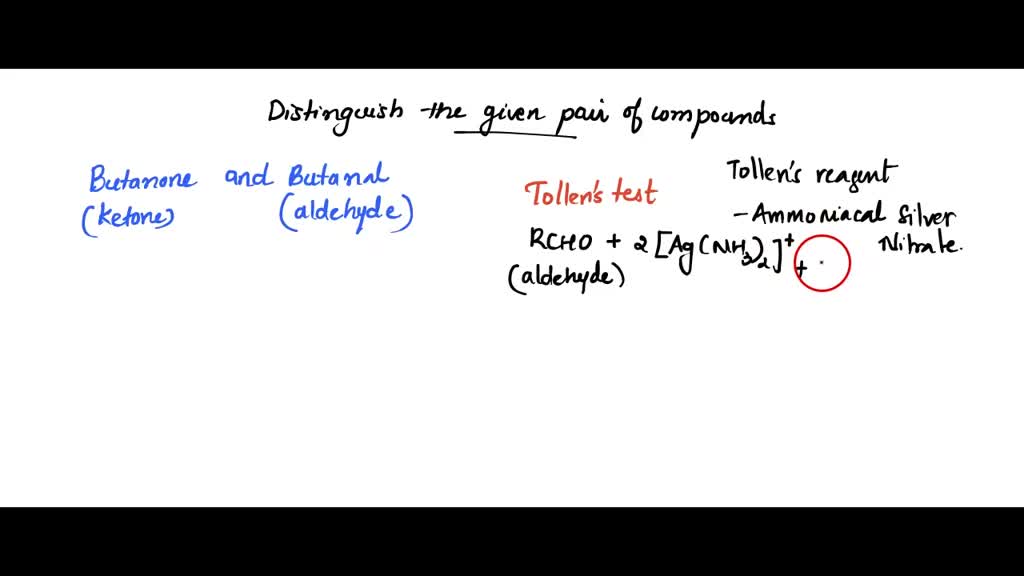 Distinguish the given pair of compounds
Butanone and Butanal
(ketone) (aldehyde)
Tollen's test
RCHO + 2 [Ag(NH3)2]+ +
(aldehyde)
Tollen's reagent
- Ammoniacal Silver
Nitrate.